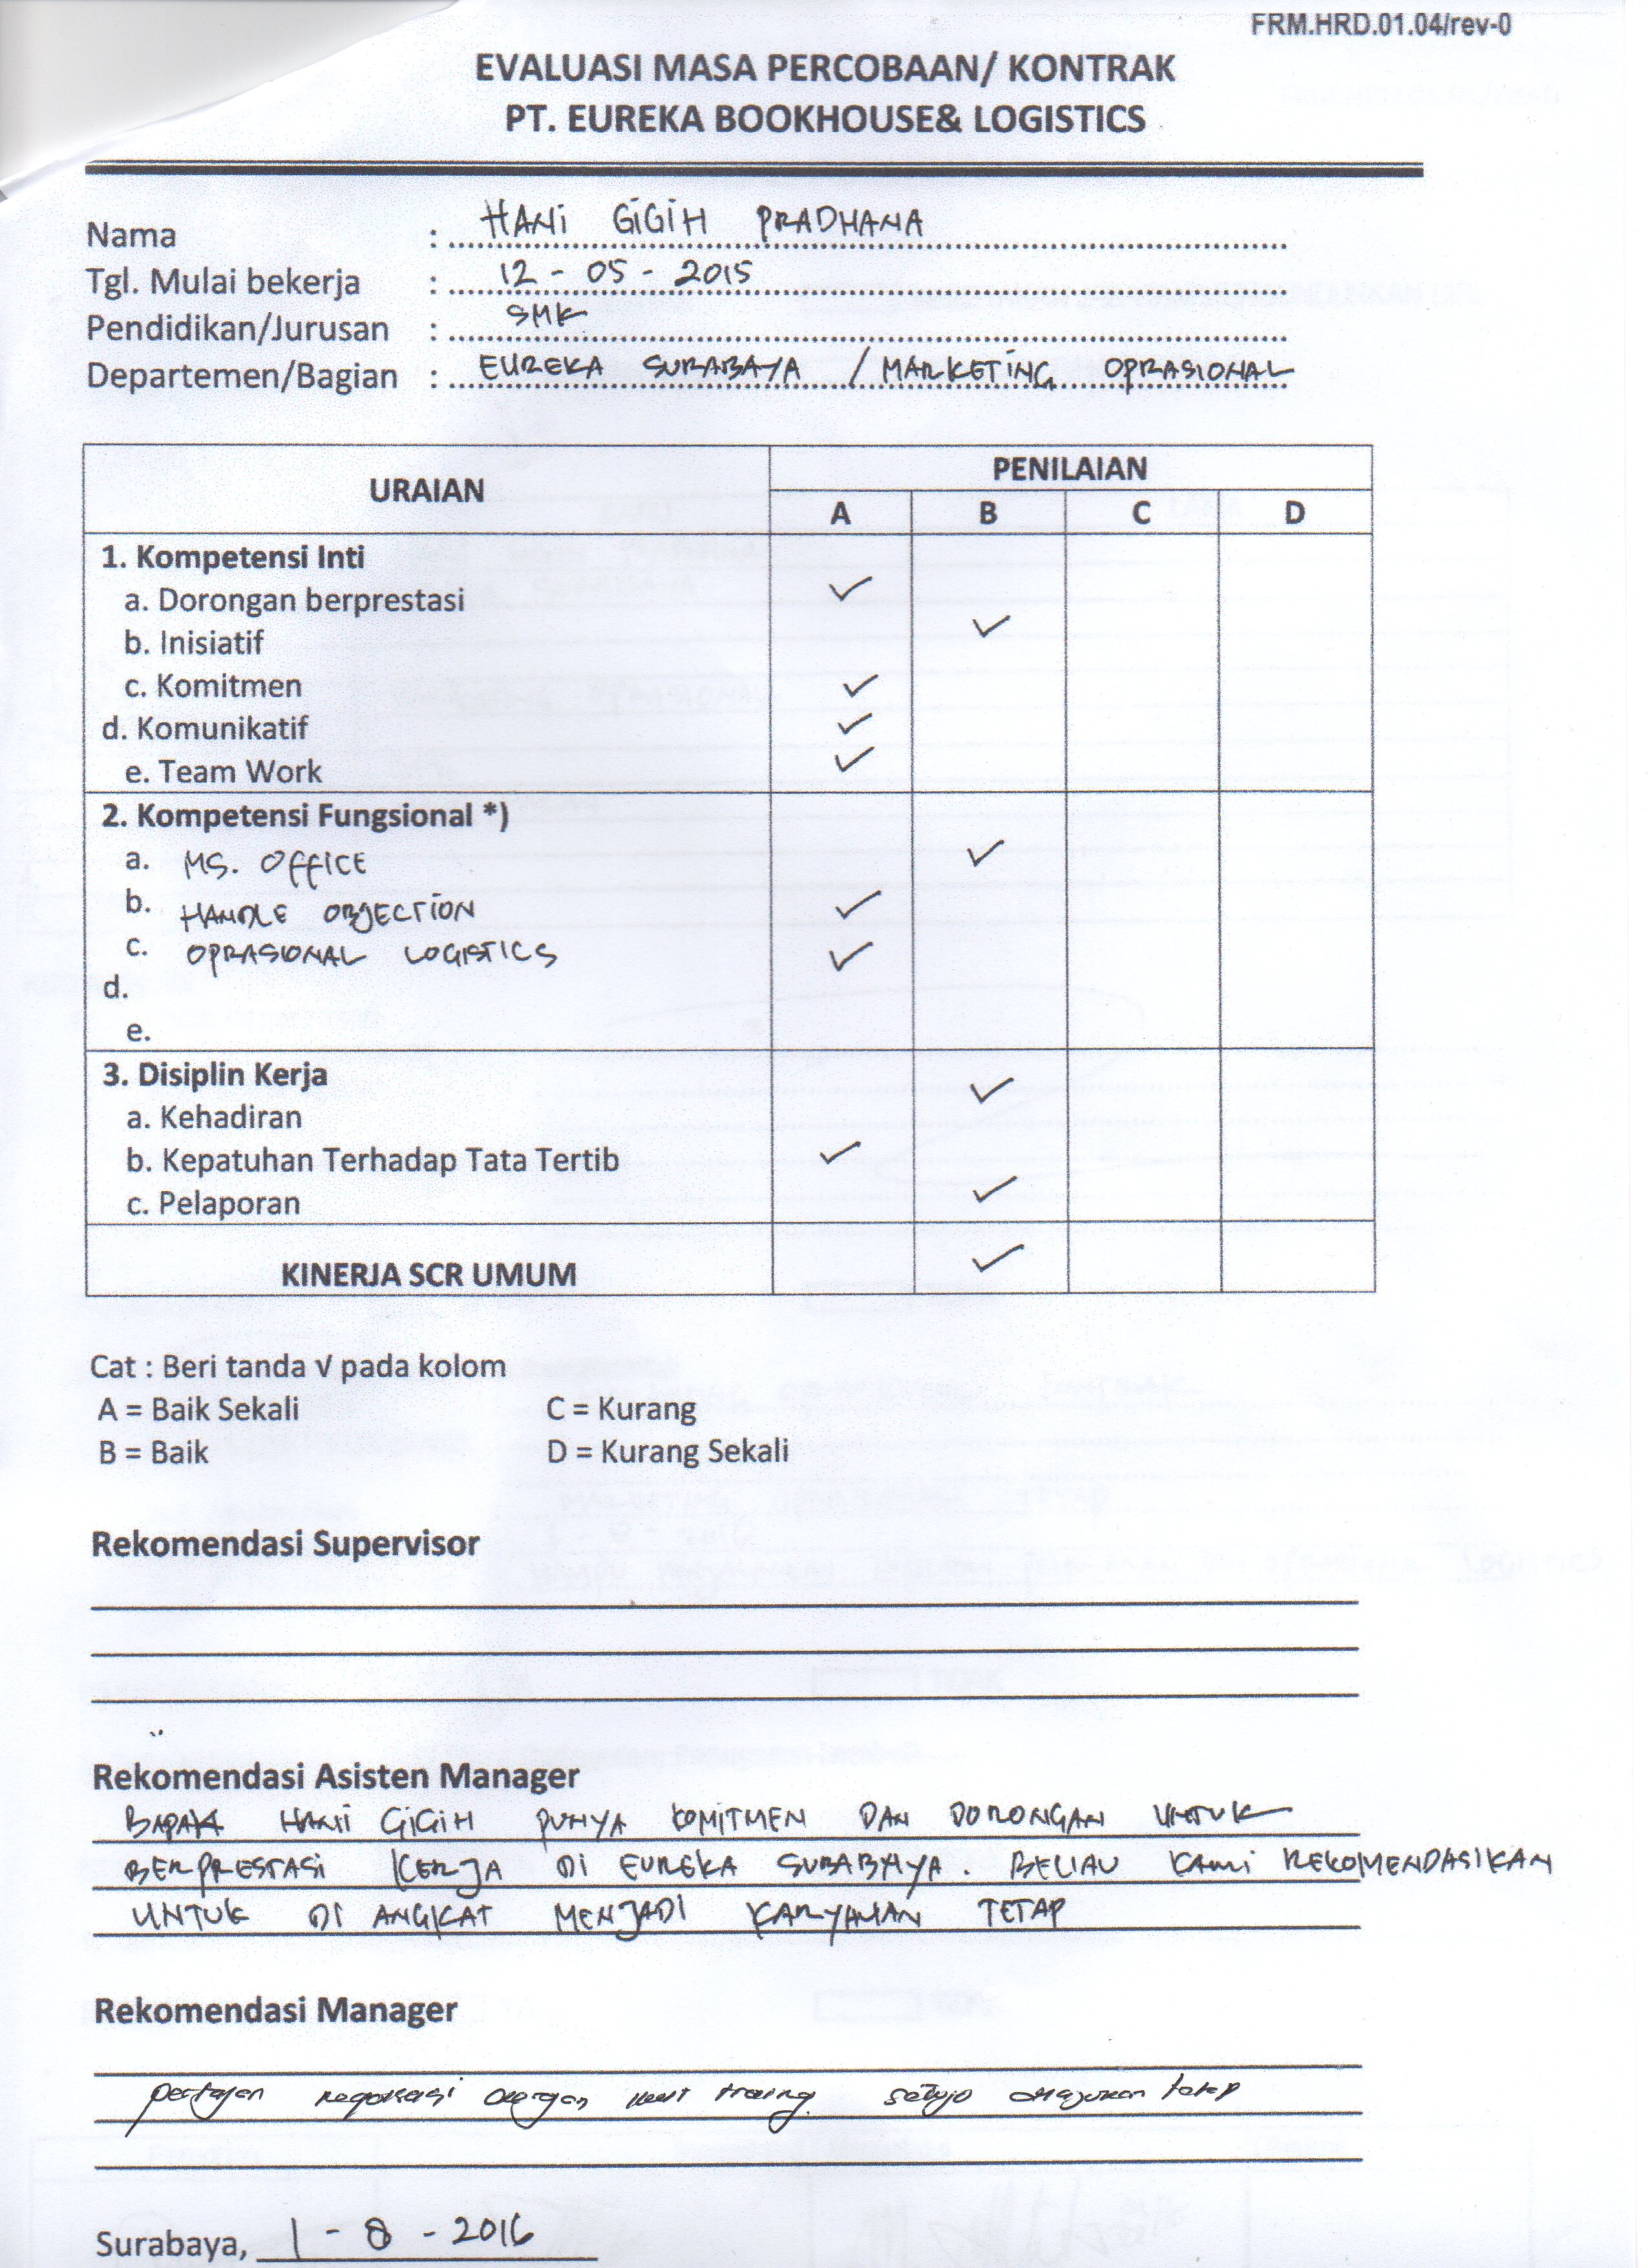 FRM.HRD.01.04/rev-0
EVALUASI MASA PERCOBAAN/ KONTRAK
PT. EUREKA BOOKHOUSE& LOGISTICS
Nama : HANI GIGIH PRADHANA
Tgl. Mulai bekerja : 12 - 05 - 2015
Pendidikan/Jurusan : SMK
Departemen/Bagian : EUREKA SURABAYA / MARKETING OPRASIONAL
URAIAN PENILAIAN
A B C D
1. Kompetensi Inti
a. Dorongan berprestasi ✓
b. Inisiatif ✓
c. Komitmen ✓
d. Komunikatif ✓
e. Team Work ✓
2. Kompetensi Fungsional *)
a. MS. OFFICE ✓
b. HANDLE OBJECTION ✓
c. OPRASIONAL LOGISTICS ✓
d.
e.
3. Disiplin Kerja
a. Kehadiran ✓
b. Kepatuhan Terhadap Tata Tertib ✓
c. Pelaporan ✓
KINERJA SCR UMUM ✓
Cat : Beri tanda √ pada kolom
A = Baik Sekali C = Kurang
B = Baik D = Kurang Sekali
Rekomendasi Supervisor
Rekomendasi Asisten Manager
BAPAK HANI GIGIH PUNYA KOMITMEN DAN DORONGAN UNTUK
BERPRESTASI KERJA DI EUREKA SURABAYA. BELIAU KAMI REKOMENDASIKAN
UNTUK DI ANGKAT MENJADI KARYAWAN TETAP
Rekomendasi Manager
pertajam negosiasi dengan setuju diajukan tetap
Surabaya, 1 - 8 - 2016